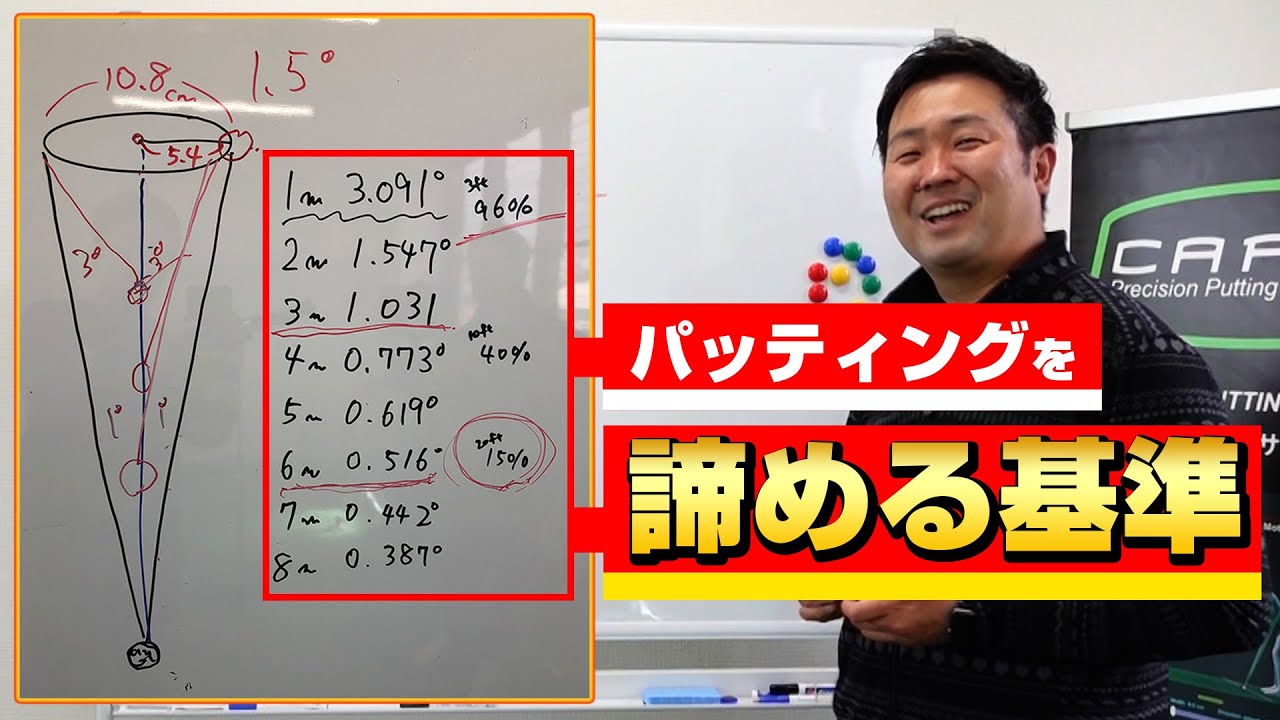 10.8cm
1.5°
5.4
3°
3°
1° 1°
1m 3.091°
3ft
96%
2m 1.547°
3m 1.031
10ft
4m 0.773° 40%
5m 0.619°
20ft
6m 0.516° 15%
7m 0.442°
8m 0.387°
パッティングを
諦める基準
CAP
Precision Putting